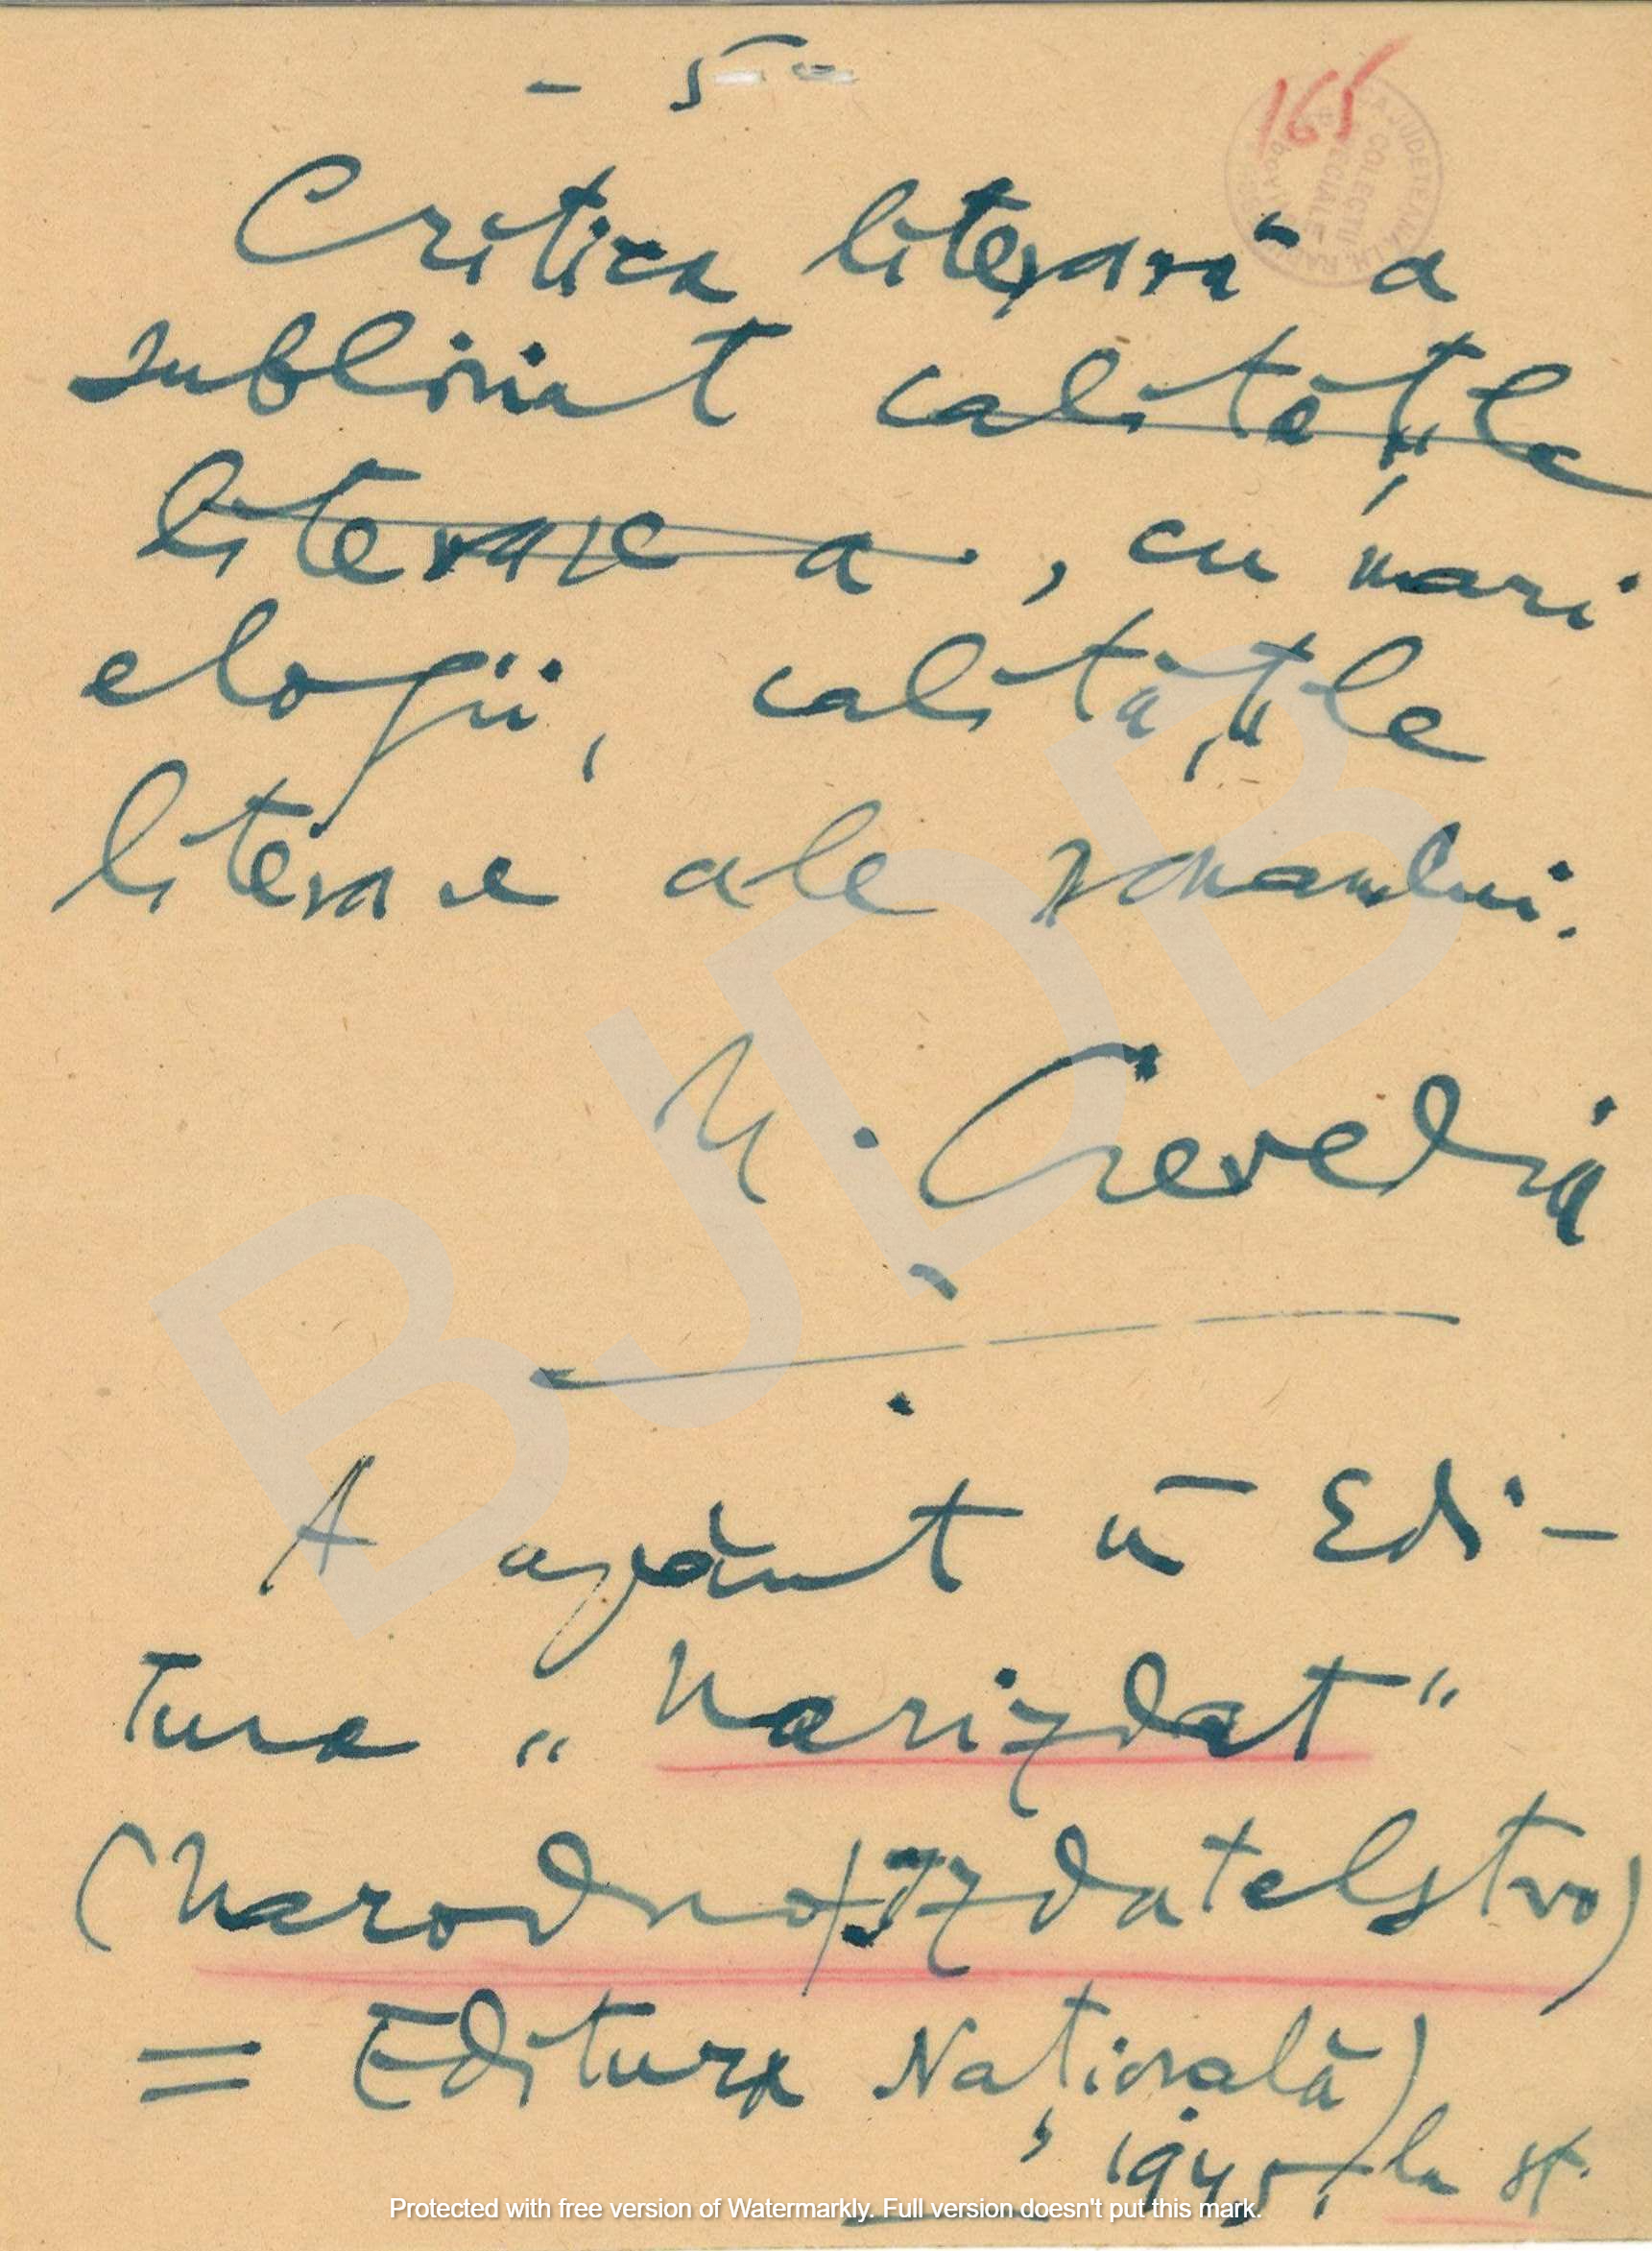 - 5 -
165
Critica literară a
subliniat calitățile
literare a, cu mari
elogii, calitățile
literare ale romanului.
A apărut în Edi-
tura „Narizdat"
(Narodno/Izdatelstvo)
= Editura Națională)
1945, la st.
BJDB
COLECȚII SPECIALE
Protected with free version of Watermarkly. Full version doesn't put this mark.